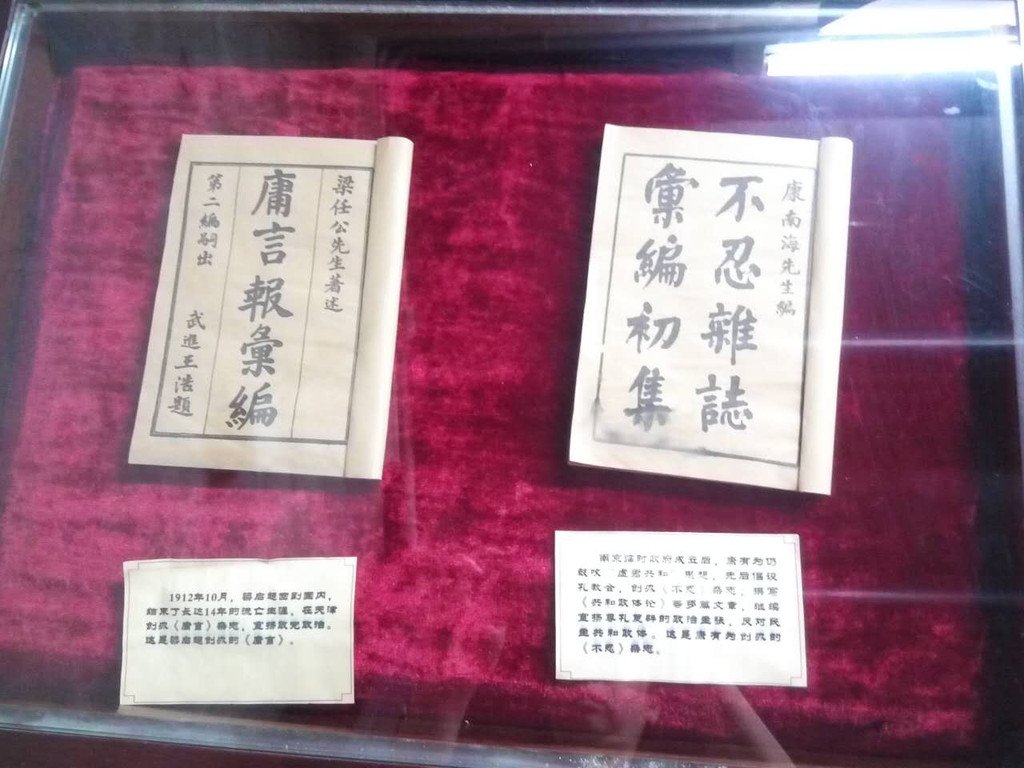 梁任公先生著述
庸言報彙編
第二編嗣出
武進王浩題
康南海先生編
不忍雜誌
彙編初集
1912年10月，梁启超回到国内，
结束了长达14年的流亡生涯，在天津
创办《庸言》杂志，宣扬政党政治。
这是梁启超创办的《庸言》。
南京临时政府成立后，康有为仍
鼓吹“虚君共和”思想，先后倡设
孔教会，创办《不忍》杂志，撰写
《共和政体论》等多篇文章，继续
宣扬尊孔复辟的政治主张，反对民
主共和政体。这是康有为创办的
《不忍》杂志。